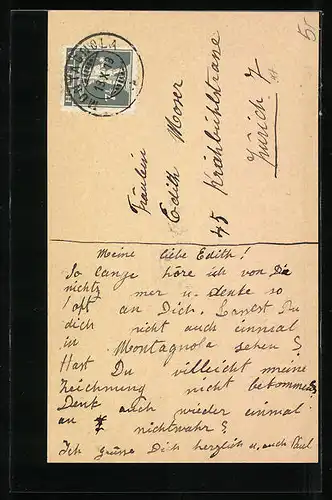 MONTAGNOLA
Fräulein
Edith Moser
45 Krähbühlstrasse
Zürich 7
Meine liebe Edith!
So lange höre ich von Dir
nichts mer u. denke so
oft an Dich. Lässest Du
dich nicht auch einmal
in Montagnola sehen?
Hast Du villeicht meine
Zeichnung nicht bekommen?
Denk auch wieder einmal
an nichtwahr?
Ich grüsse Dich herzlich u. auch Paul